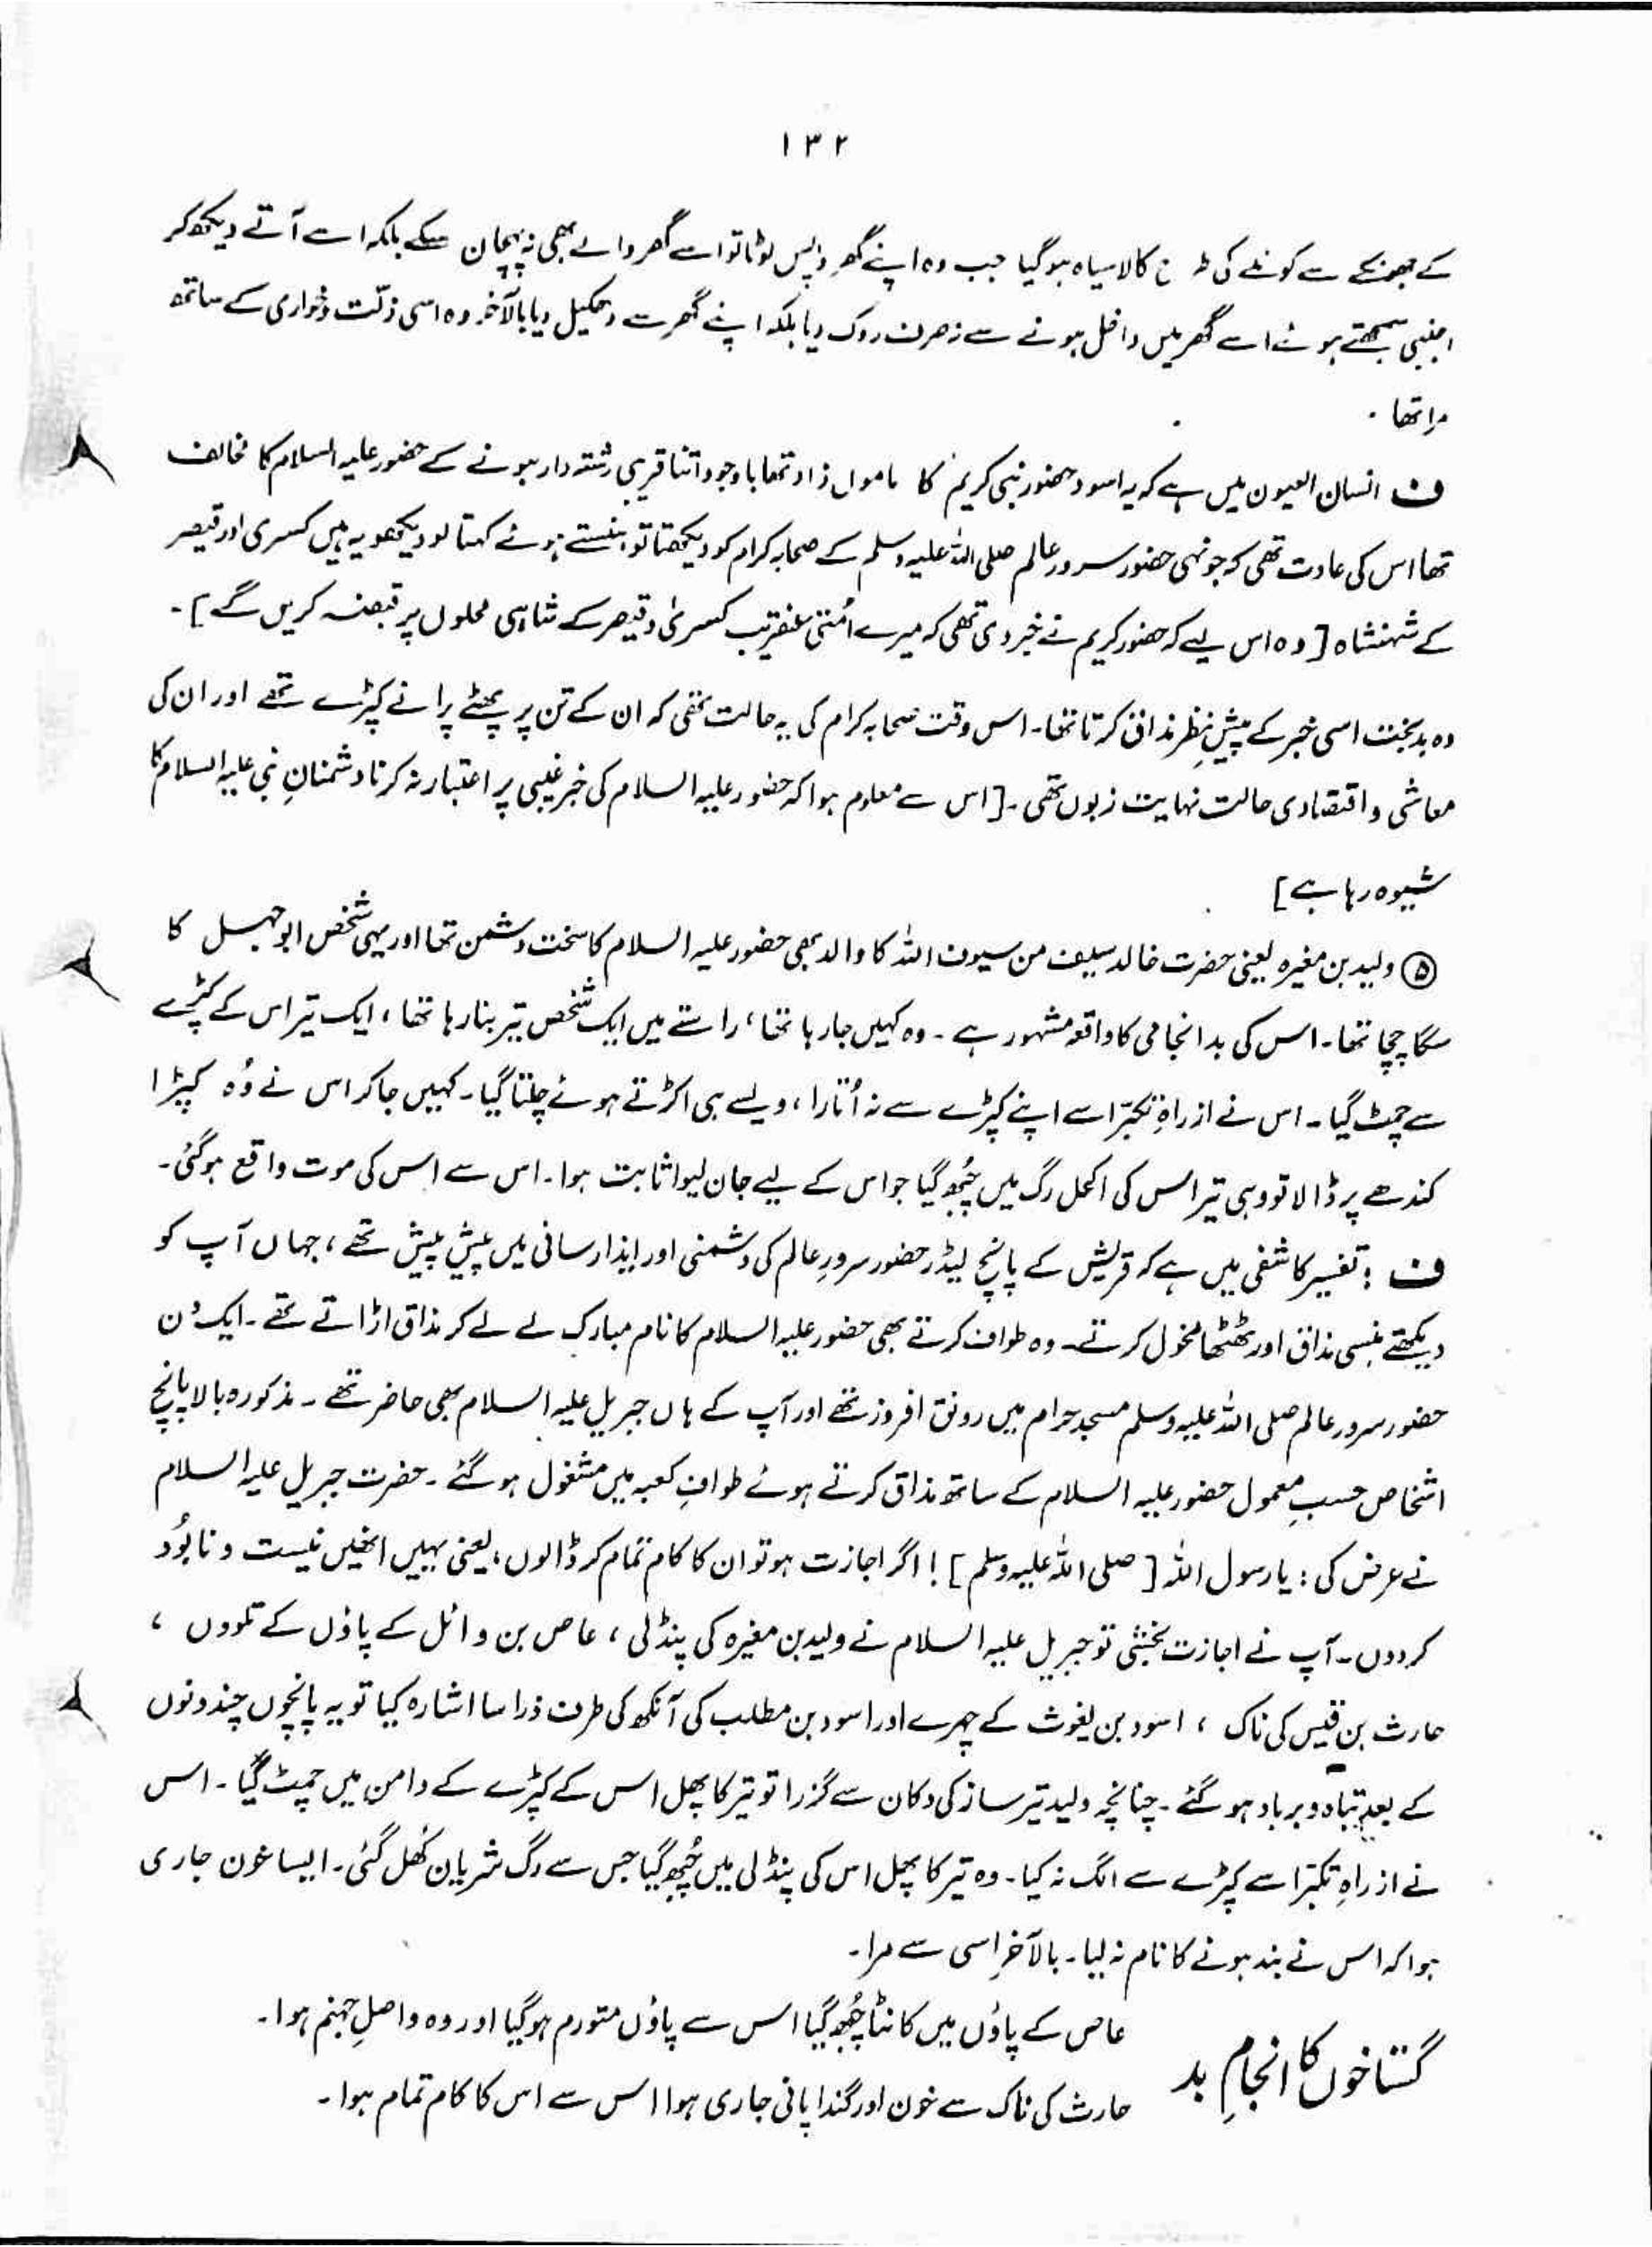 ۱۳۲
کے جھونکے سے کوئلے کی طرح کالا سیاہ ہوگیا جب وہ اپنے گھر واپس لوٹا تو اسے گھر والے بھی نہ پہچان سکے بلکہ اسے آتے دیکھ کر
اجنبی سمجھتے ہوئے اسے گھر میں داخل ہونے سے نہ صرف روک دیا بلکہ اپنے گھر سے دھکیل دیا بالآخر وہ اسی ذلّت و خواری کے ساتھ
مرا تھا ۔
ف انسان العیون میں ہے کہ یہ اسود حضور نبی کریم کا ماموں زاد تھا باوجود اتنا قریبی رشتہ دار ہونے کے حضور علیہ السلام کا مخالف
تھا اس کی عادت تھی کہ جونہی حضور سرورِ عالم صلی اللہ علیہ وسلم کے صحابہ کرام کو دیکھتا تو ہنستے ہوئے کہتا لو دیکھو یہ ہیں کسریٰ اور قیصر
کے شہنشاہ [ وہ اس لیے کہ حضور کریم نے خبر دی تھی کہ میرے اُمتی عنقریب کسریٰ و قیصر کے شاہی محلوں پر قبضہ کریں گے ]۔
وہ بدبخت اسی خبر کے پیشِ نظر مذاق کرتا تھا۔ اس وقت صحابہ کرام کی یہ حالت تھی کہ ان کے تن پر پھٹے پرانے کپڑے تھے اور ان کی
معاشی و اقتصادی حالت نہایت زبوں تھی ۔ [ اس سے معلوم ہوا کہ حضور علیہ السلام کی خبرِ غیبی پر اعتبار نہ کرنا دشمنانِ نبی علیہ السلام کا
شیوہ رہا ہے ]
⑤ ولید بن مغیرہ یعنی حضرت خالد سیف من سیوف اللہ کا والد بھی حضور علیہ السلام کا سخت دشمن تھا اور یہی شخص ابوجہل کا
سگا چچا تھا۔ اس کی بد انجامی کا واقعہ مشہور ہے ۔ وہ کہیں جا رہا تھا ، راستے میں ایک شخص تیر بنا رہا تھا ، ایک تیر اس کے کپڑے
سے چمٹ گیا ۔ اس نے ازراہِ تکبّر اسے اپنے کپڑے سے نہ اُتارا ، ویسے ہی اکڑتے ہوئے چلتا گیا ۔ کہیں جا کر اس نے وُہ کپڑا
کندھے پر ڈالا تو وہی تیر اس کی اکحل رگ میں چُبھ گیا جو اس کے لیے جان لیوا ثابت ہوا ۔ اس سے اس کی موت واقع ہوگئی ۔
ف : تفسیر کاشفی میں ہے کہ قریش کے پانچ لیڈر حضور سرورِ عالم کی دشمنی اور ایذا رسانی میں پیش پیش تھے ، جہاں آپ کو
دیکھتے ہنسی مذاق اور ٹھٹھا مخول کرتے ۔ وہ طواف کرتے بھی حضور علیہ السلام کا نام مبارک لے لے کر مذاق اڑاتے تھے ۔ ایک دن
حضور سرور عالم صلی اللہ علیہ وسلم مسجدِ حرام میں رونق افروز تھے اور آپ کے ہاں جبریل علیہ السلام بھی حاضر تھے ۔ مذکورہ بالا پانچ
اشخاص حسبِ معمول حضور علیہ السلام کے ساتھ مذاق کرتے ہوئے طوافِ کعبہ میں مشغول ہوگئے ۔ حضرت جبریل علیہ السلام
نے عرض کی : یا رسول اللہ [ صلی اللہ علیہ وسلم ] ! اگر اجازت ہو تو ان کا کام تمام کر ڈالوں ، یعنی یہیں انھیں نیست و نابُود
کر دوں ۔ آپ نے اجازت بخشی تو جبریل علیہ السلام نے ولید بن مغیرہ کی پنڈلی ، عاص بن وائل کے پاؤں کے تلووں ،
حارث بن قیس کی ناک ، اسود بن یغوث کے چہرے اور اسود بن مطلب کی آنکھ کی طرف ذرا سا اشارہ کیا تو یہ پانچوں چند دنوں
کے بعد تباہ و برباد ہوگئے ۔ چنانچہ ولید تیر ساز کی دکان سے گزرا تو تیر کا پھل اس کے کپڑے کے دامن میں چمٹ گیا ۔ اس
نے از راہِ تکبّر اسے کپڑے سے الگ نہ کیا ۔ وہ تیر کا پھل اس کی پنڈلی میں چُبھ گیا جس سے رگ شریان کُھل گئی ۔ ایسا خون جاری
ہوا کہ اس نے بند ہونے کا نام نہ لیا ۔ بالآخر اِسی سے مرا ۔
گستاخوں کا انجامِ بد
عاص کے پاؤں میں کانٹا چُبھ گیا اس سے پاؤں متورم ہوگیا اور وہ واصلِ جہنم ہوا ۔
حارث کی ناک سے خون اور گندا پانی جاری ہوا اس سے اس کا کام تمام ہوا ۔